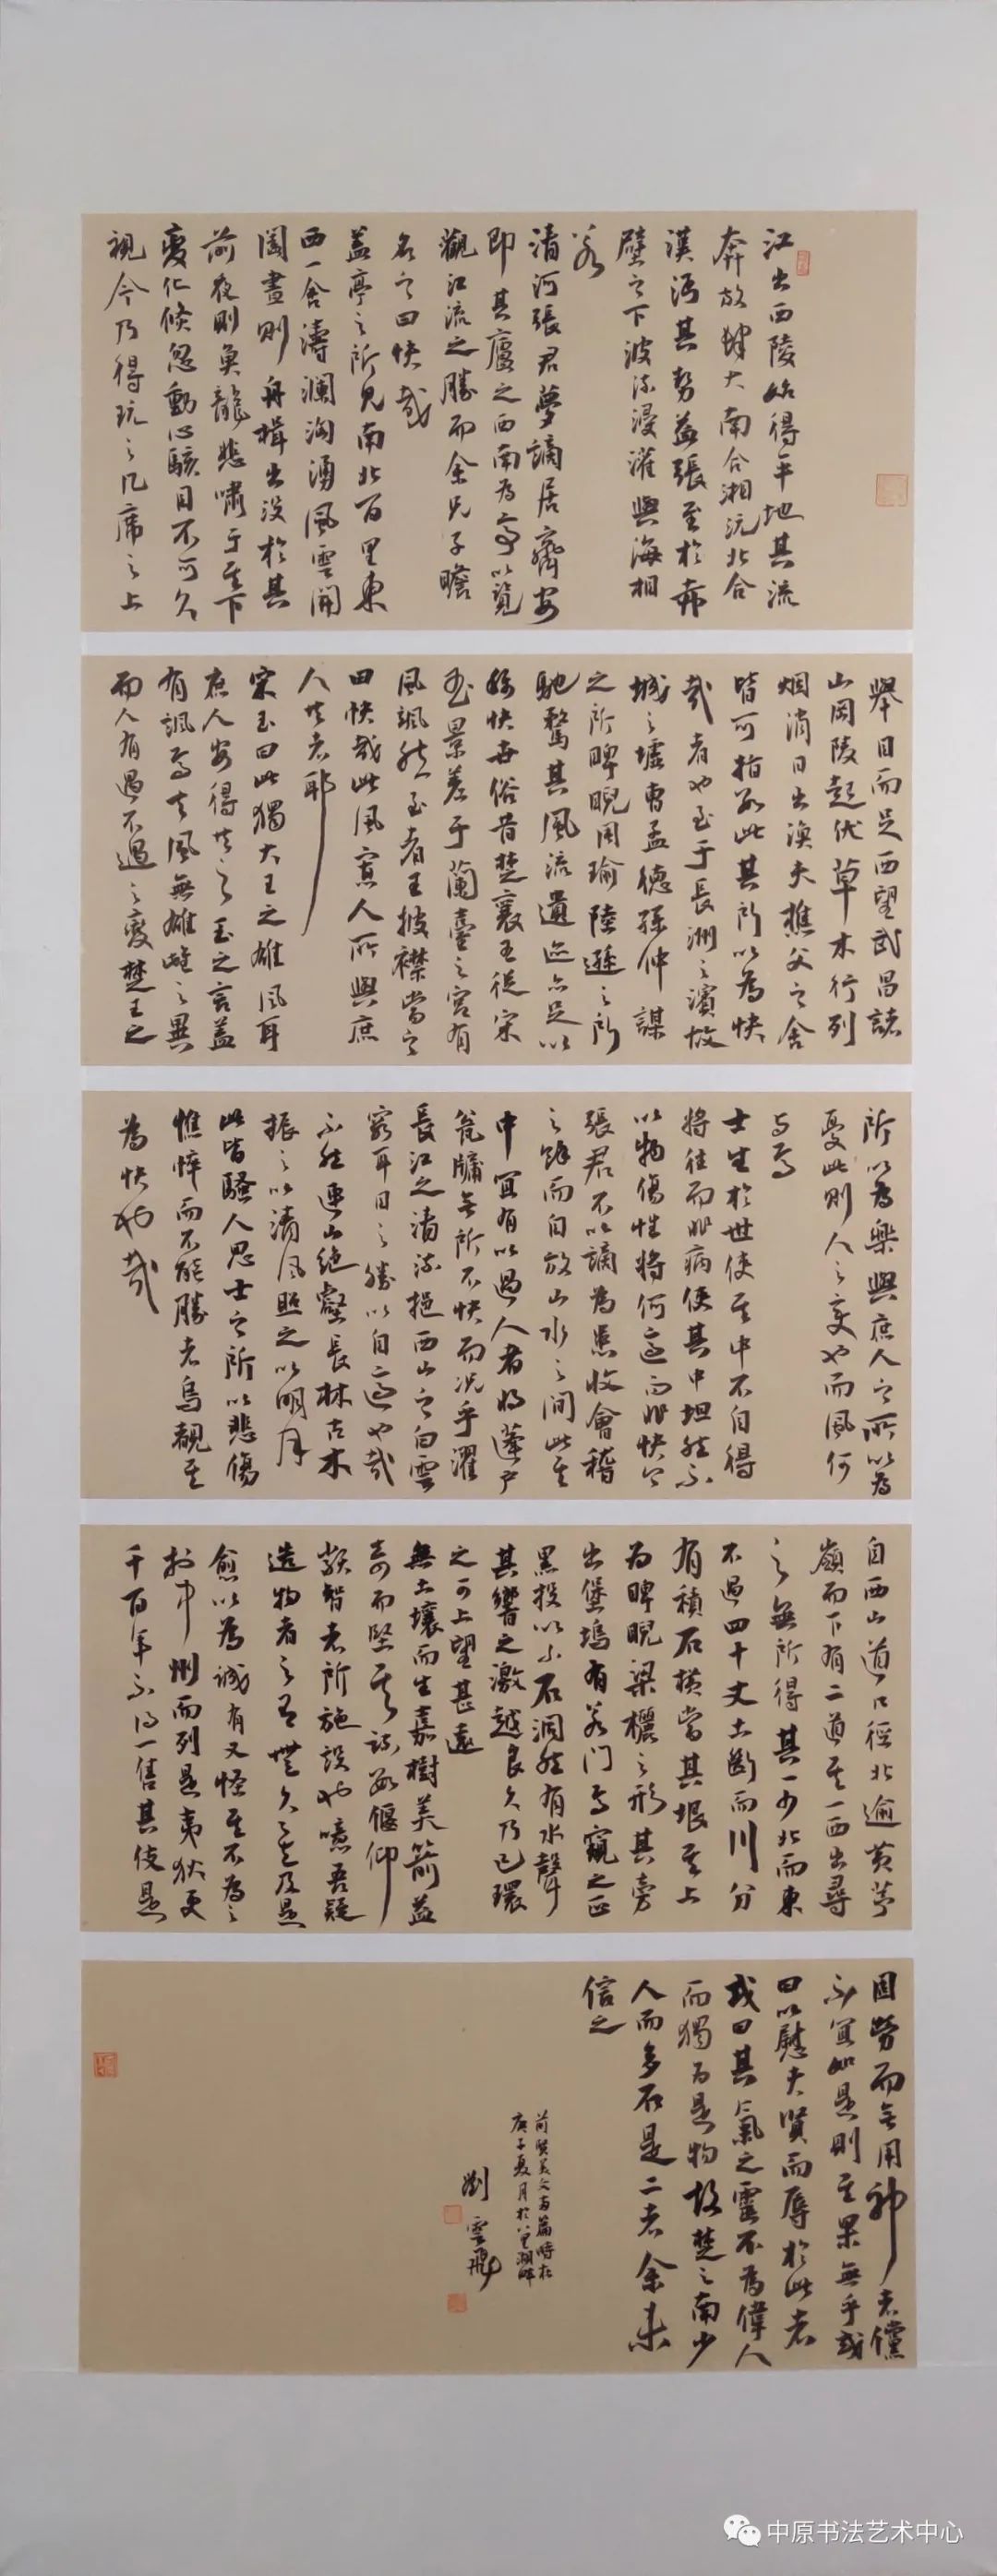 江出西陵始得平地其流
奔放肆大南合湘沅北合
漢沔其勢益張至於赤
壁之下波流浸灌與海相
若
清河張君夢謫居齊安
即其廬之西南為亭以覽
觀江流之勝而余兄子瞻
名之曰快哉
蓋亭之所見南北百里東
西一舍濤瀾洶湧風雲開
闔晝則舟楫出沒於其
前夜則魚龍悲嘯于其下
變化倏忽動心駭目不可久
視今乃得玩之几席之上
舉目而足西望武昌諸
山岡陵起伏草木行列
烟消日出漁夫樵父之舍
皆可指數此其所以為快
哉者也至于長洲之濱故
城之墟曹孟德孫仲謀
之所睥睨周瑜陸遜之所
馳騖其風流遺迹亦足以
稱快世俗昔楚襄王從宋
玉景差于蘭臺之宮有
風颯然至者王披襟當之
曰快哉此風寡人所與庶
人共者耶
宋玉曰此獨大王之雄風耳
庶人安得共之玉之言蓋
有諷焉夫風無雄雌之異
而人有遇不遇之變楚王之
所以為樂與庶人之所以為
憂此則人之變也而風何
與焉
士生於世使其中不自得
將往而非病使其中坦然不
以物傷性將何適而非快今
張君不以謫為患收會稽
之餘而自放山水之間此其
中宜有以過人者將蓬戶
瓮牖無所不快而況乎濯
長江之清流挹西山之白雲
窮耳目之勝以自適也哉
不然連山絕壑長林古木
振之以清風照之以明月
此皆騷人思士之所以悲傷
憔悴而不能勝者烏覩其
為快也哉
自西山道口徑北逾黃茅
嶺而下有二道其一西出尋
之無所得其一少北而東
不過四十丈土斷而川分
有積石橫當其垠其上
為睥睨梁欐之形其旁
出堡塢有若門焉窺之正
黑投以小石洞然有水聲
其響之激越良久乃已環
之可上望甚遠
無土壤而生嘉樹美箭益
奇而堅其疏數偃仰
類智者所施設也噫吾疑
造物者之有無久之矣及是
愈以為誠有又怪其不為之
於中州而列是夷狄更
千百年不得一售其伎是
固勞而無用神者儻
不宜如是則其果無乎或
曰以慰夫賢而辱於此者
或曰其氣之靈不為偉人
而獨為是物故楚之南少
人而多石是二者余未
信之
前賢美文兩篇時在
庚子夏月於
劉雲飛
中原书法艺术中心